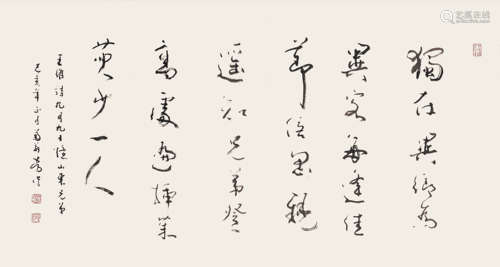 獨在異鄉為
異客每逢佳
節倍思親
遥知兄弟登
高處遍插茱
萸少一人
王維詩九月九日憶山東兄弟
己亥年